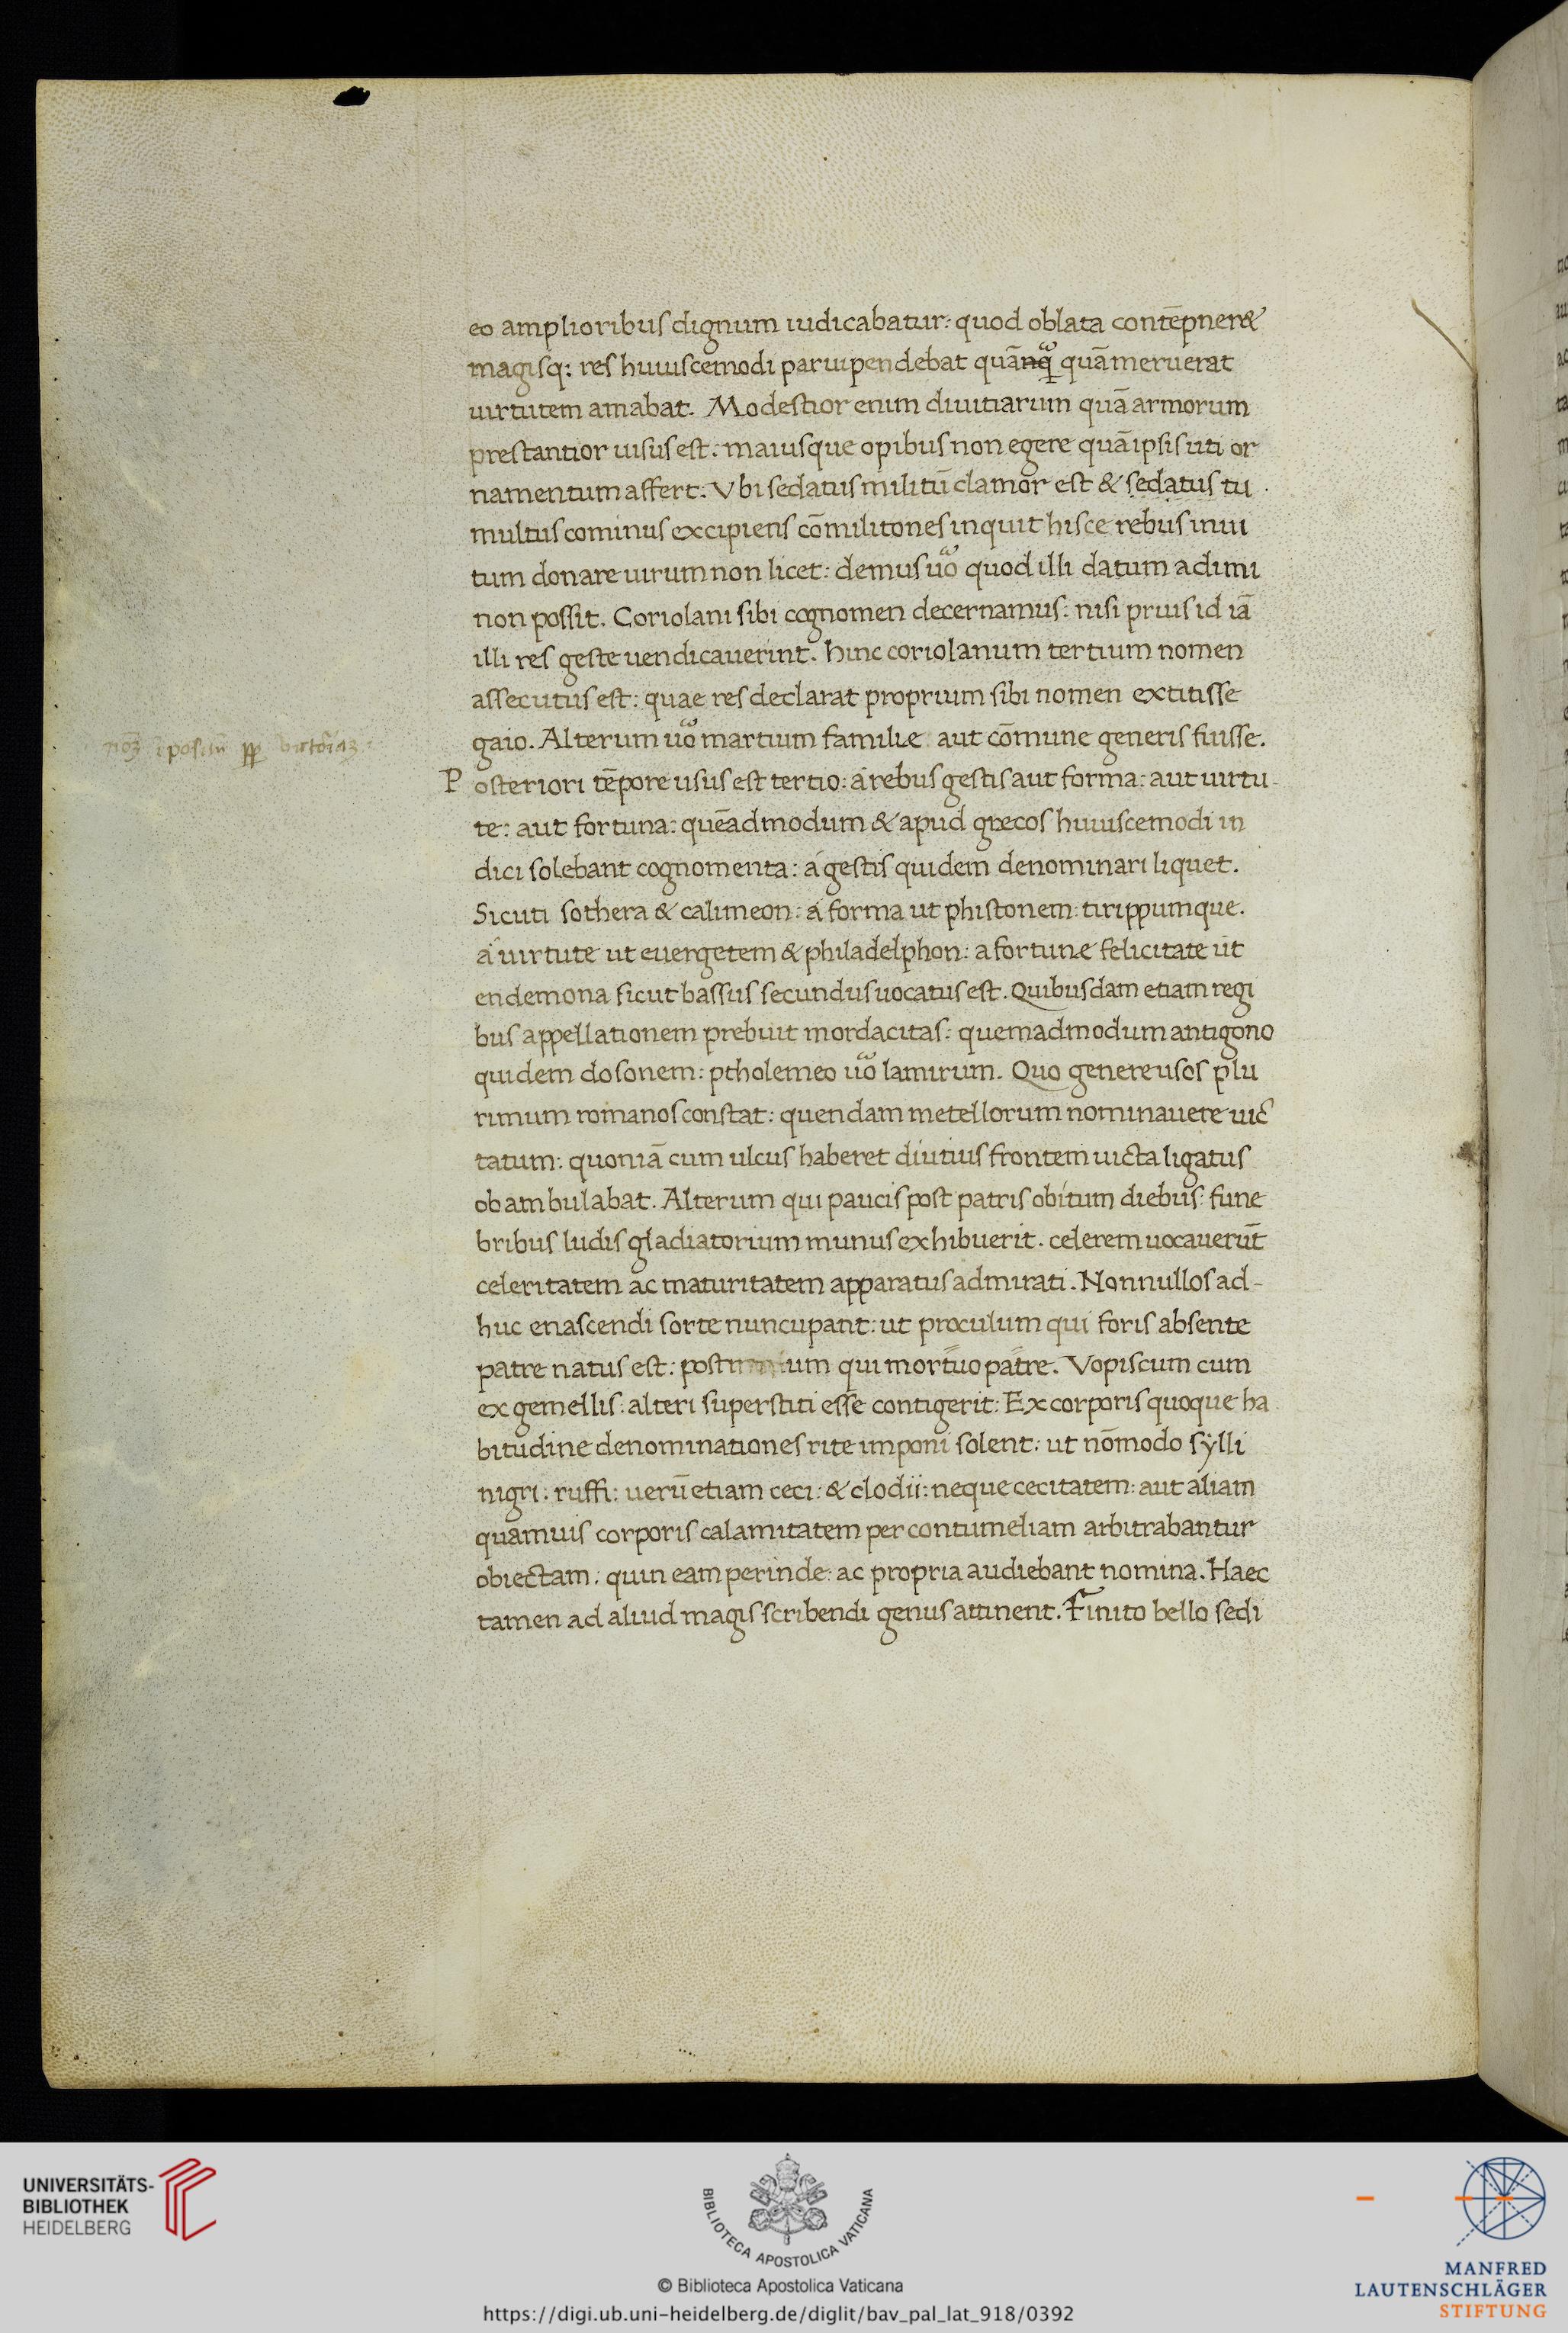 eo amplioribus dignum iudicabatur: quod oblata contēpneret
magisq: res huiuscemodi paruipendebat quā quā meruerat
uirtutem amabat. Modestior enim diuitiarum quā armorum
prestantior uisus est: maiusque opibus non egere quā ipsis uti or
namentum affert: Vbi sedatus militū clamor est & sedatus tu
multus cominus excipiens cōmilitones inquit hisce rebus inui
tum donare uirum non licet: demus uͦo quod illi datum adimi
non possit. Coriolani sibi cognomen decernamus: nisi prius id iā
illi res geste uendicauerint. hinc coriolanum tertium nomen
assecutus est: quae res declarat proprium sibi nomen extitisse
gaio. Alterum uͦo martium familie aut cōmune generis fuisse.
Posteriori tēpore usus est tertio: a rebus gestis aut forma: aut uirtu-
te: aut fortuna: quēadmodum & apud grecos huiuscemodi in
dici solebant cognomenta: a gestis quidem denominari liquet.
Sicuti sothera & calimeon: a forma ut phistonem: tirippumque.
a uirtute ut euergetem & philadelphon: a fortune felicitate ut
endemona sicut bassus secundus uocatus est. Quibusdam etiam regi
bus appellationem prebuit mordacitas: quemadmodum antigono
quidem dosonem: ptholemeo uͦo lamirum. Quo genere usos plu
rimum romanos constat: quendam metellorum nominauere uic
tatum: quoniā cum ulcus haberet diutius frontem uicta ligatus
obambulabat. Alterum qui paucis post patris obitum diebus: fune
bribus ludis gladiatorium munus exhibuerit. celerem uocauerūt
celeritatem ac maturitatem apparatus admirati. Nonnullos ad-
huc enascendi sorte nuncupant: ut proculum qui foris absente
patre natus est: qui mortuo patre. Vopiscum cum
ex gemellis: alteri superstiti esse contigerit: Ex corporis quoque ha
bitudine denominationes rite imponi solent: ut nōmodo sylli
nigri: ruffi: uerū etiam ceci: & clodii: neque cecitatem: aut aliam
quamuis corporis calamitatem per contumeliam arbitrabantur
obiectam: quin eam perinde: ac propria audiebant nomina. Haec
tamen ad aliud magis scribendi genus attinent. Finito bello sedi
UNIVERSITÄTS-
BIBLIOTHEK
HEIDELBERG
BIBLIOTECA APOSTOLICA VATICANA
© Biblioteca Apostolica Vaticana
https://digi.ub.uni-heidelberg.de/diglit/bav_pal_lat_918/0392
MANFRED
LAUTENSCHLÄGER
STIFTUNG